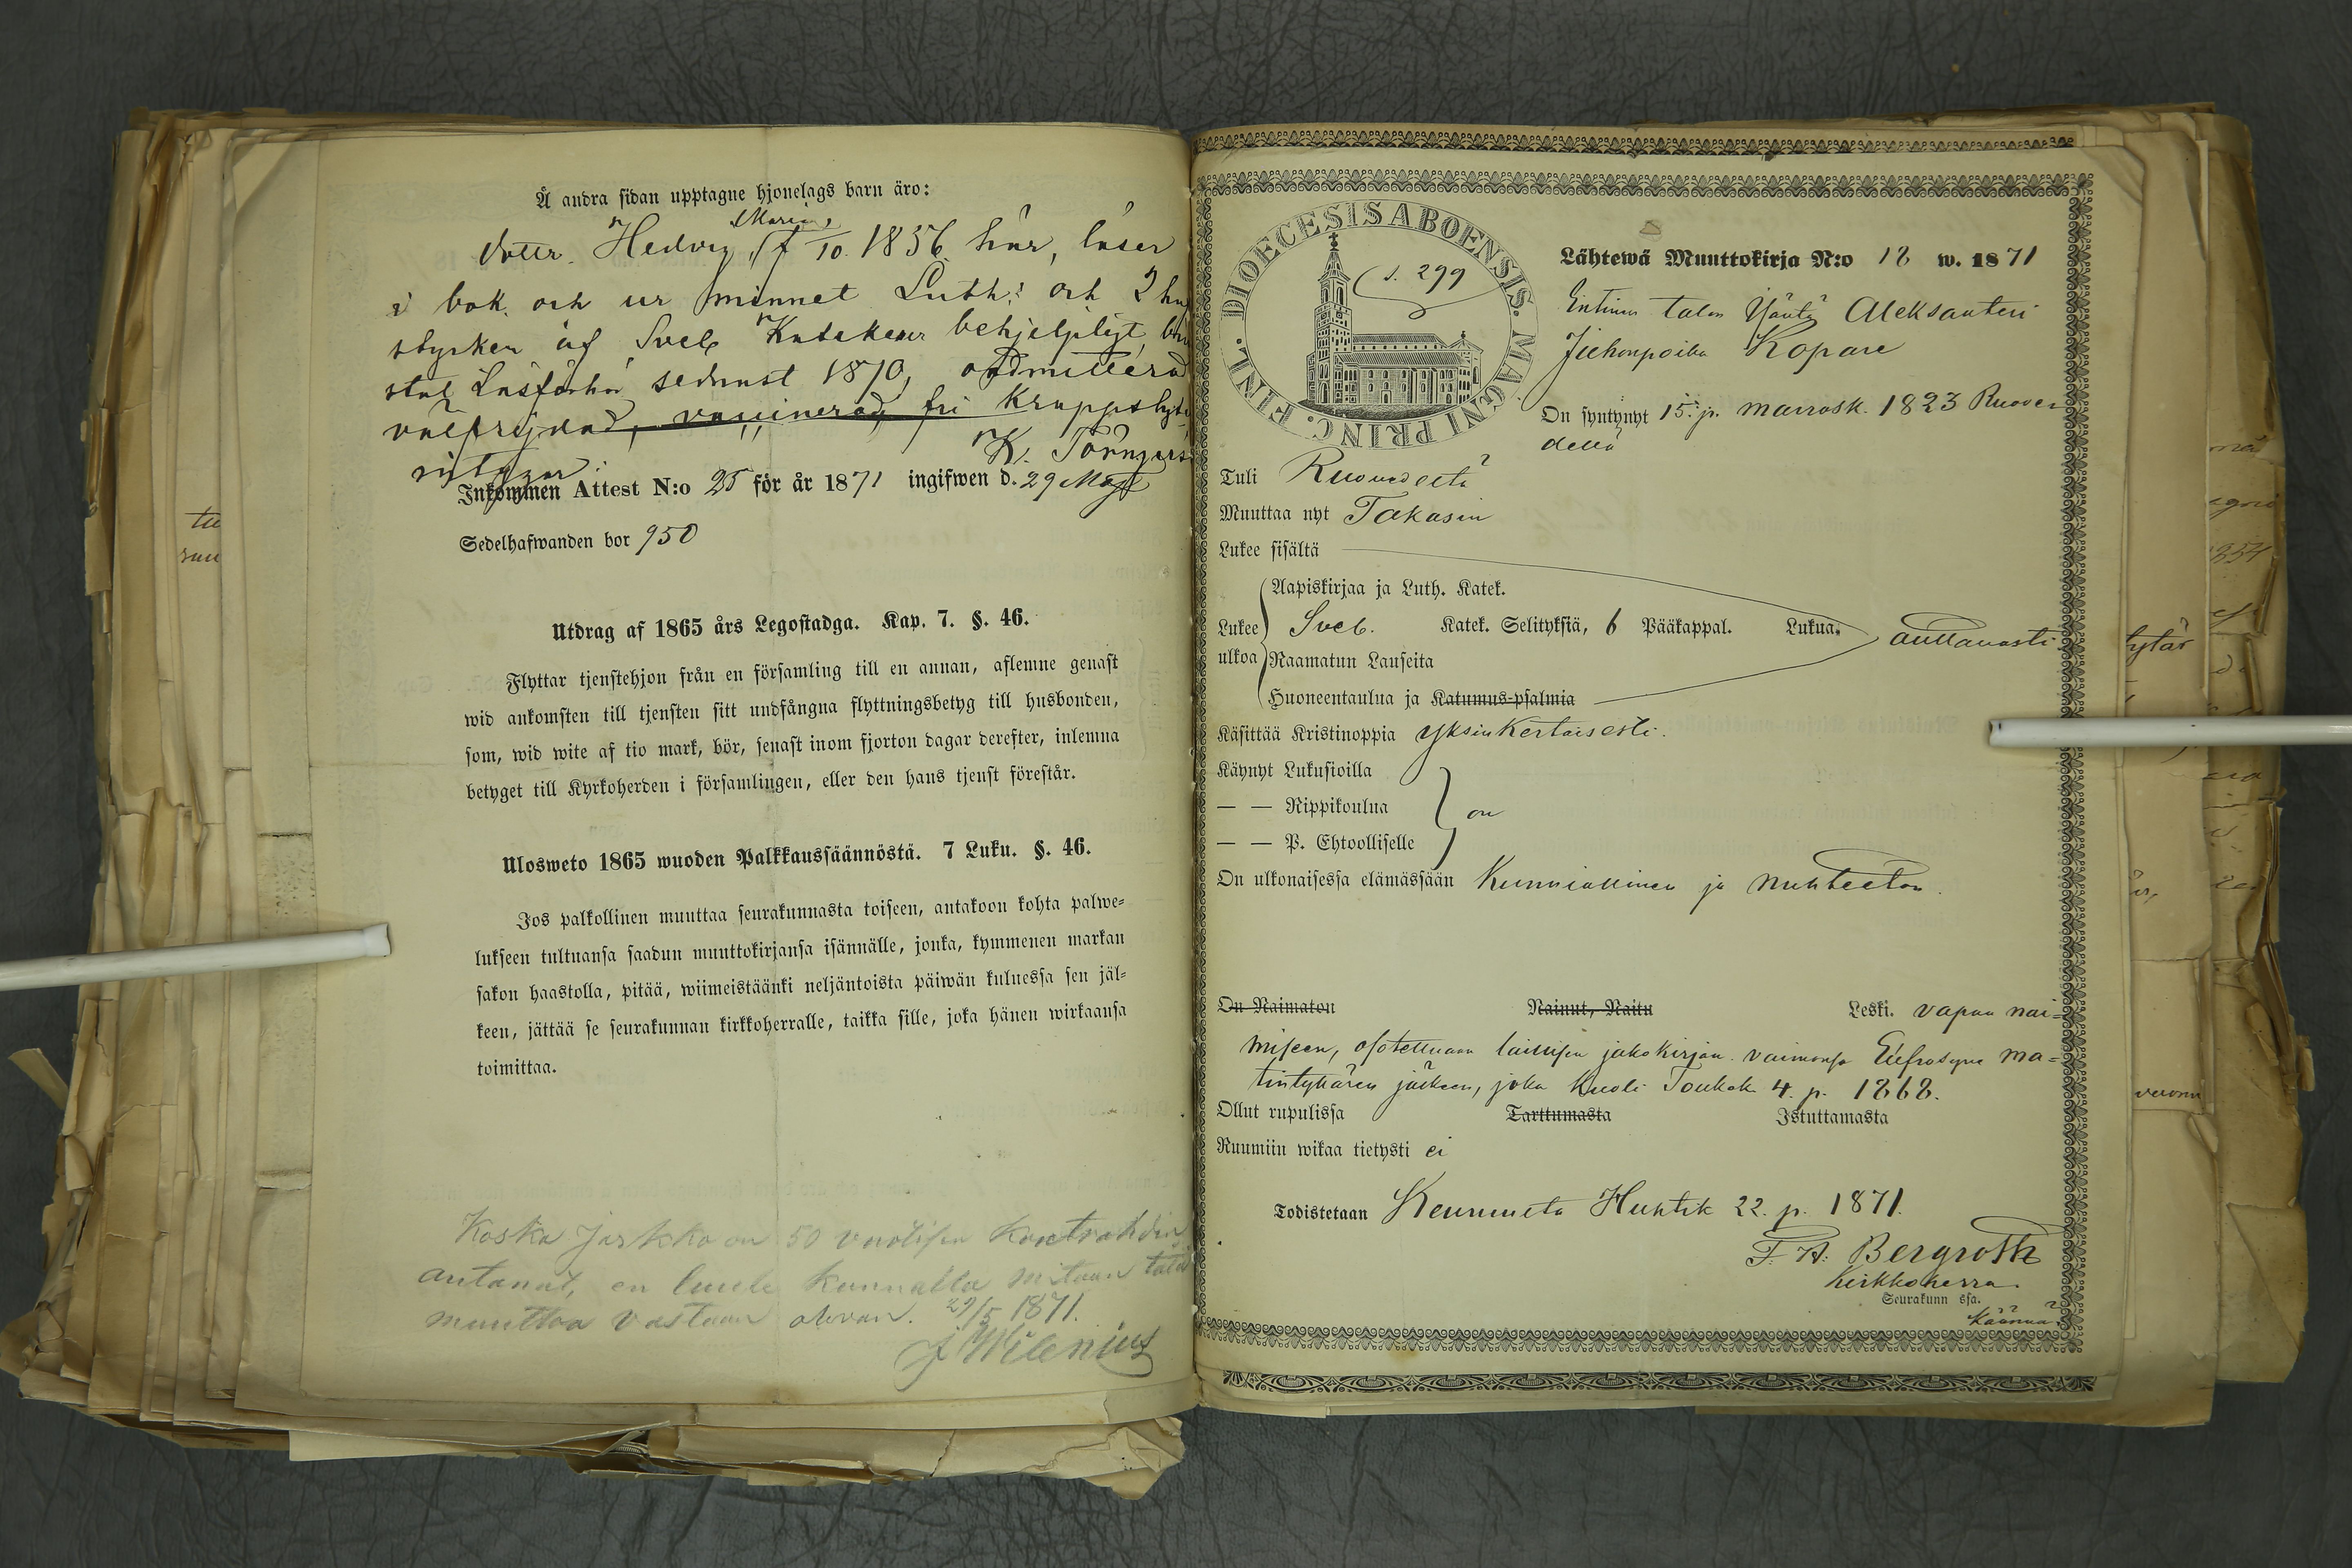 Å andra sidan upptagne hjonelags barn äro:
Maria
dottr. Hedvig, f. /10. 1856 här, läser
i bok och ur minnet Luth: och 2 hu
stycken af Sveb Katekes behjelpligt, be
sednast 1870, admitterad
välfrejdad, vaccinerad, fri
intygar
K. Törn
Inkommen Attest N:o 25 för år 1871 ingifwen d. 29 Maji
Sedelhafwanden bor 950
Utdrag af 1865 års Legostadga. Kap. 7. §. 46.
Flyttar tjenstehjon från en församling till en annan, aflemne genast
wid ankomsten till tjensten sitt undfångna flyttningsbetyg till husbonden,
som, wid wite af tio mark, bör, senast inom fjorton dagar derefter, inlemna
betyget till Kyrkoherden i församlingen, eller den hans tjenst förestår.
Ulosweto 1865 wuoden Palkkaussäännöstä. 7 Luku. §. 46.
Jos palkollinen muuttaa seurakunnasta toiseen, antakoon kohta palwe-
lukseen tultuansa saadun muuttokirjansa isännälle, jonka, kymmenen markan
sakon haastolla, pitää, wiimeistäänki neljäntoista päiwän kuluessa sen jäl-
keen, jättää se seurakunnan kirkkoherralle, taikka sille, joka hänen wirkaansa
toimittaa.
Koska Jaskka on 50 vuotisen Kontrahdin
antanut, en luule kunnalla mitään tätä
muuttoa vastaan olevan. 29/5 1871.
J Wilenius
DIOECESIS ABOENSIS. MAGNI PRINC. FINL.
s. 299
Lähtewä Muuttokirja N:o 18 w. 1871
Entinen talon Isäntä Aleksanteri
Juhonpoika Kopare
On syntynyt 15. p. marrask. 1823 Ruove-
dellä
Tuli Ruovedeltä
Muuttaa nyt Takasin
Lukee sisältä
Aapiskirjaa ja Luth. Katek.
Lukee ulkoa Sveb. Katek. Selityksiä, 6 Pääkappal. Lukua. auttavasti
Raamatun Lauseita
Huoneentaulua ja Katumus-psalmia
Käsittää Kristinoppia yksinkertaisesti.
Käynyt Lukusioilla
— — Rippikoulua on
— — P. Ehtoolliselle
On ulkonaisessa elämässään Kunniallinen ja nuhteeton.
On Naimaton Nainut, Naitu Leski. vapaa nai-
miseen, osotettuaan laillisen jakokirjan vaimonsa Eufrosyna Ma-
tintyttären jälkeen, joka kuoli Toukok 4. p. 1868.
Ollut rupulissa Tarttumasta Istuttamasta
Ruumiin wikaa tietysti ei
Todistetaan Keuruulta Huhtik 22. p. 1871.
F. H. Bergroth
Kirkkoherra.
Seurakunnassa.
Käännä
tytär